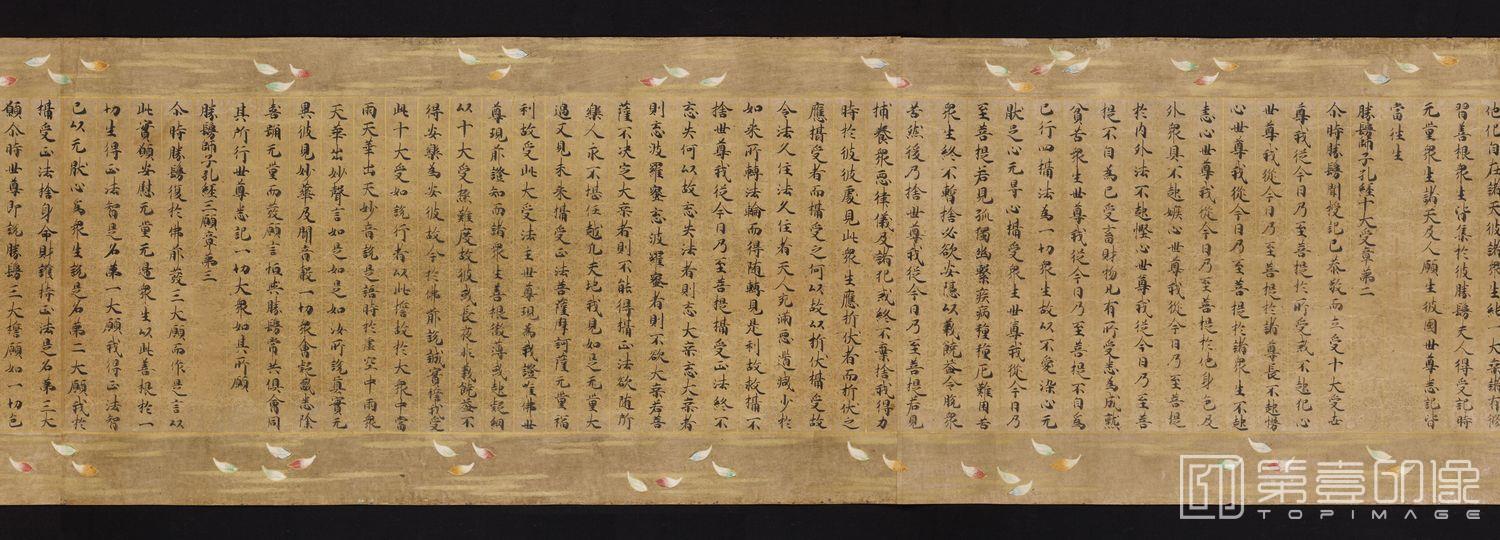 他化自在諸天彼諸衆生純一大乘諸有修
習善根衆生皆集於彼勝鬘夫人得受記時
无量衆生諸天及人願生彼國世尊悉記皆
當往生
勝鬘師子吼經十大受章第二
尒時勝鬘聞授記已恭敬而立受十大受世
尊我從今日乃至菩提於所受戒不起犯心
世尊我從今日乃至菩提於諸尊長不起慢
心世尊我從今日乃至菩提於諸衆生不起
恚心世尊我從今日乃至菩提於他身色及
外衆具不起嫉心世尊我從今日乃至菩提
於內外法不起慳心世尊我從今日乃至菩
提不自為己受畜財物凡有所受悉為成熟
貧苦衆生世尊我從今日乃至菩提不自為
己行四攝法為一切衆生故以不愛染心无
厭足心无㝵心攝受衆生世尊我從今日乃
至菩提若見孤獨幽繫疾病種種厄難困苦
衆生終不暫捨必欲安隱以義饒益令脫衆
苦然後乃捨世尊我從今日乃至菩提若見
捕養衆惡律儀及諸犯戒終不棄捨我得力
時於彼彼處見此衆生應折伏者而折伏之
應攝受者而攝受之何以故以折伏攝受故
令法久住法久住者天人充滿惡道減少於
如來所轉法輪而得隨轉見是利故救攝不
捨世尊我從今日乃至菩提攝受正法終不
忘失何以故忘失法者則忘大乘忘大乘者
則忘波羅蜜忘波羅蜜者則不欲大乘若菩
薩不決定大乘者則不能得攝正法欲隨所
樂入永不堪任越凡夫地我見如是无量大
過又見未來攝受正法菩薩摩訶薩无量福
利故受此大受法主世尊現為我證唯佛世
尊現前證知而諸衆生善根微薄或起疑網
以十大受極難度故彼或長夜非義饒益不
得安樂為安彼故今於佛前說誠實誓我受
此十大受如說行者以此誓故於大衆中當
雨天華出天妙音說是語時於虛空中雨衆
天華出妙聲言如是如是如汝所說真實无
異彼見妙華及聞音聲一切衆會疑惑悉除
喜踊无量而發願言恒與勝鬘常共俱會同
其所行世尊悉記一切大衆如其所願
勝鬘師子吼經三願章第三
尒時勝鬘復於佛前發三大願而作是言以
此實願安慰无量无邊衆生以此善根於一
切生得正法智是名第一大願我得正法智
已以无厭心為衆生說是名第二大願我於
攝受正法捨身命財護持正法是名第三大
願尒時世尊即說勝鬘三大誓願如一切色
第壹印像
TOPIMAGE